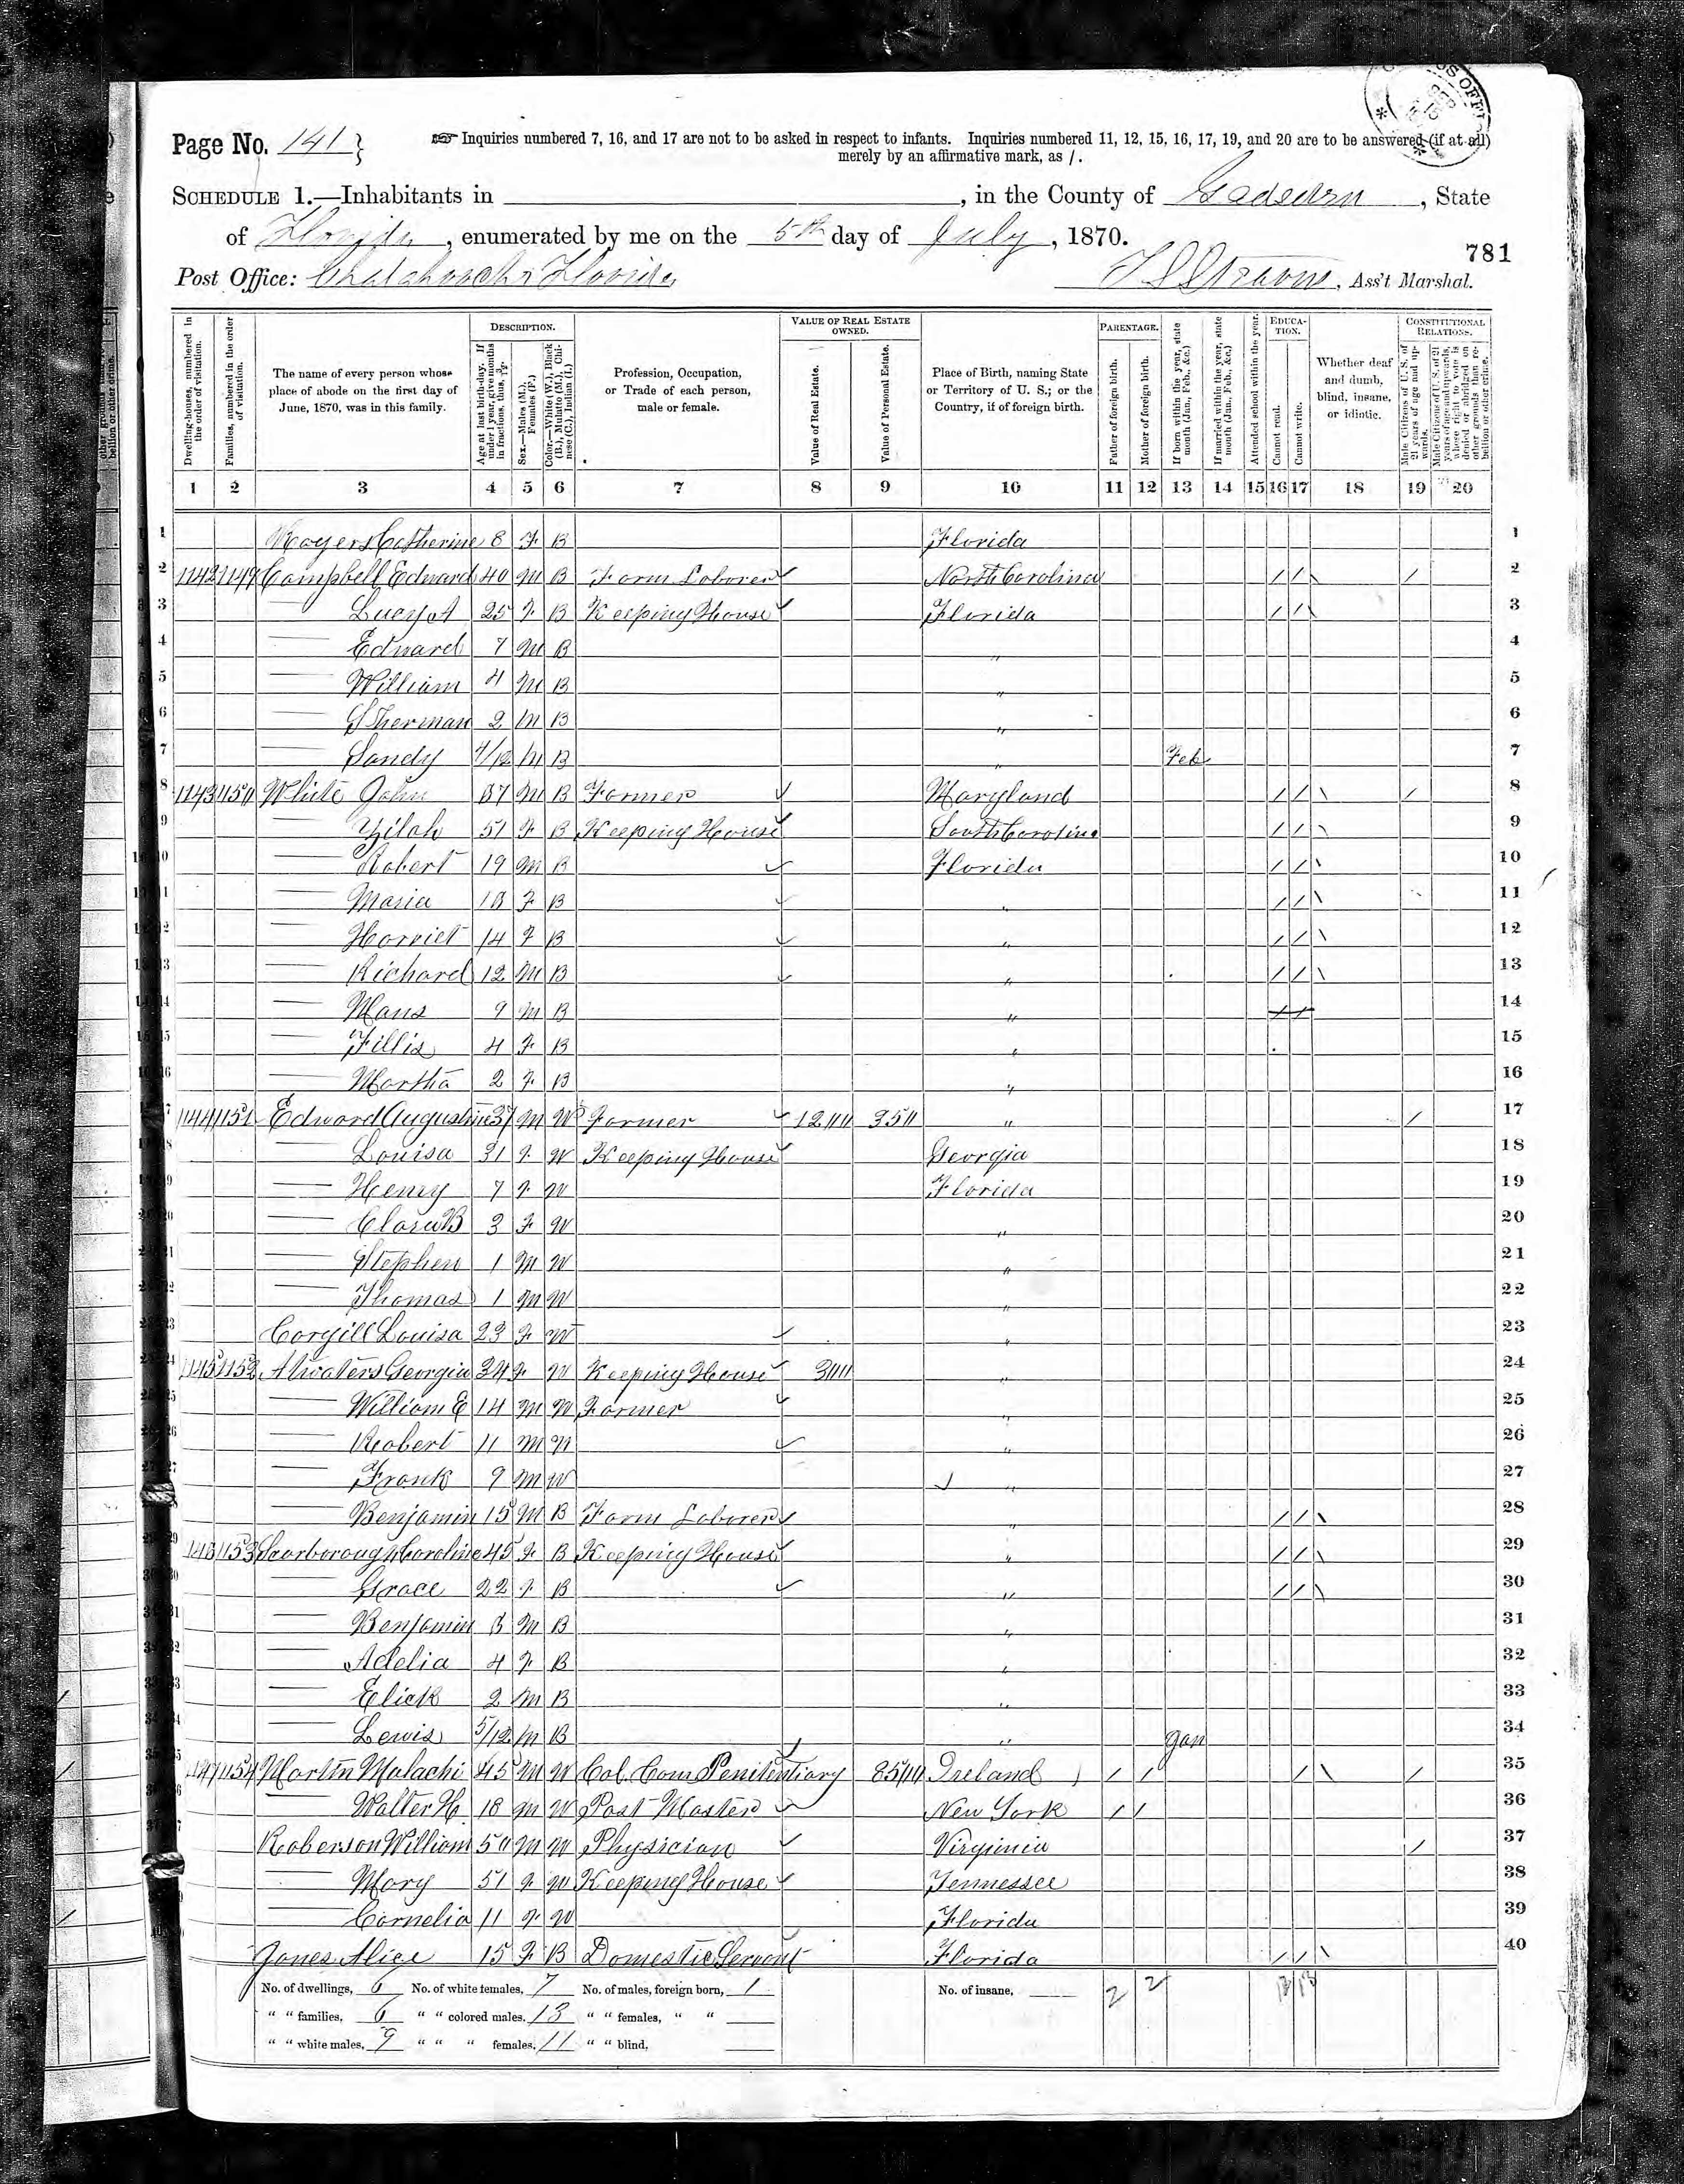 Page No. 141
☞ Inquiries numbered 7, 16, and 17 are not to be asked in respect to infants. Inquiries numbered 11, 12, 15, 16, 17, 19, and 20 are to be answered (if at all)
merely by an affirmative mark, as /.
SCHEDULE 1.—Inhabitants in , in the County of Gadsden, State
of Florida, enumerated by me on the 5th day of July, 1870.
781
Post Office: Chatahoochi Florida , Ass't Marshal.
DESCRIPTION. VALUE OF REAL ESTATE OWNED. PARENTAGE. EDUCATION. CONSTITUTIONAL RELATIONS.
Dwelling-houses, numbered in the order of visitation.
Families, numbered in the order of visitation.
The name of every person whose place of abode on the first day of June, 1870, was in this family.
Age at last birth-day. If under 1 year, give months in fractions, thus, 3/12.
Sex.—Males (M.), Females (F.)
Color.—White (W.), Black (B.), Mulatto (M.), Chinese (C.), Indian (I.)
Profession, Occupation, or Trade of each person, male or female.
Value of Real Estate.
Value of Personal Estate.
Place of Birth, naming State or Territory of U. S.; or the Country, if of foreign birth.
Father of foreign birth.
Mother of foreign birth.
If born within the year, state month (Jan., Feb., &c.)
If married within the year, state month (Jan., Feb., &c.)
Attended school within the year.
Cannot read.
Cannot write.
Whether deaf and dumb, blind, insane, or idiotic.
Male Citizens of U. S. of 21 years of age and upwards.
Male Citizens of U. S. of 21 years of age and upwards, where right to vote is denied or abridged on other grounds than rebellion or other crime.
1 2 3 4 5 6 7 8 9 10 11 12 13 14 15 16 17 18 19 20
1 Catherine 8 F B Florida 1
2 1142 1149 Campbell Edward 40 M B Farm Laborer North Carolina / / / 2
3 — Lucy A 25 F B Keeping House Florida / / 3
4 — Edward 7 M B " 4
5 — William 4 M B " 5
6 — Sherman 2 M B " 6
7 — Sandy 4/12 M B " Feb 7
8 1143 1150 White John M B Farmer Maryland / / / 8
9 — Zilah 51 F B Keeping House South Carolina / / 9
10 — Robert 19 M B Florida / / 10
11 — Maria 18 F B " / / 11
12 — Harriet 14 F B " / / 12
13 — Richard 12 M B " / / 13
14 — Mans 9 M B " 14
15 — Fillis 4 F B " 15
16 — Martha 2 F B " 16
17 1144 1151 Edward Augustine 37 M W Farmer 1200 350 " / 17
18 — Louisa 31 F W Keeping House Georgia 18
19 — Henry 7 F W Florida 19
20 — Clara B 3 F W " 20
21 — Stephen 1 M W " 21
22 — Thomas 1 M W " 22
23 Corgill Louisa 23 F W " 23
24 1145 1152 Atwaters Georgia 34 F W Keeping House 300 " 24
25 — William E 14 M W Farmer " 25
26 — Robert 11 M W " 26
27 — Frank 9 M W " 27
28 — Benjamin 15 M B Farm Laborer " / / 28
29 1146 1153 Scarborough Caroline 45 F B Keeping House " / / 29
30 — Grace 22 F B " / / 30
31 — Benjamin 8 M B " 31
32 — Adelia 4 F B " 32
33 — Elick 2 M B " 33
34 — Lewis 5/12 M B " Jan 34
35 1147 1154 Martin Malachi 45 M W Col. Com Penitentiary 8500 Ireland / / / / 35
36 — Walter H 18 M W Post Master New York / / 36
37 Roberson William 50 M W Physician Virginia / 37
38 — Mary 51 F W Keeping House Tennessee 38
39 — Cornelia 11 F W Florida 39
40 Jones Alice 15 F B Domestic Servant Florida / / 40
No. of dwellings, 6 No. of white females, 7 No. of males, foreign born, 1 No. of insane, 2 2 13 13
" " families, 6 " " colored males, 13 " " females, " "
" " white males, 9 " " " females, 11 " " blind,